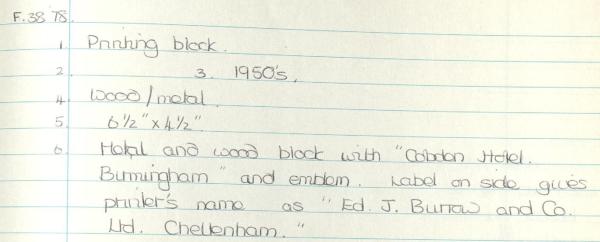 F.38 78.
1. Printing block.
2. 3. 1950's.
4. Wood/metal
5. 6½" x 4½"
6. Metal and wood block with "Cobden Hotel.
Birmingham" and emblem. Label on side gives
printer's name as "Ed. J. Burrow and Co.
Ltd. Cheltenham."